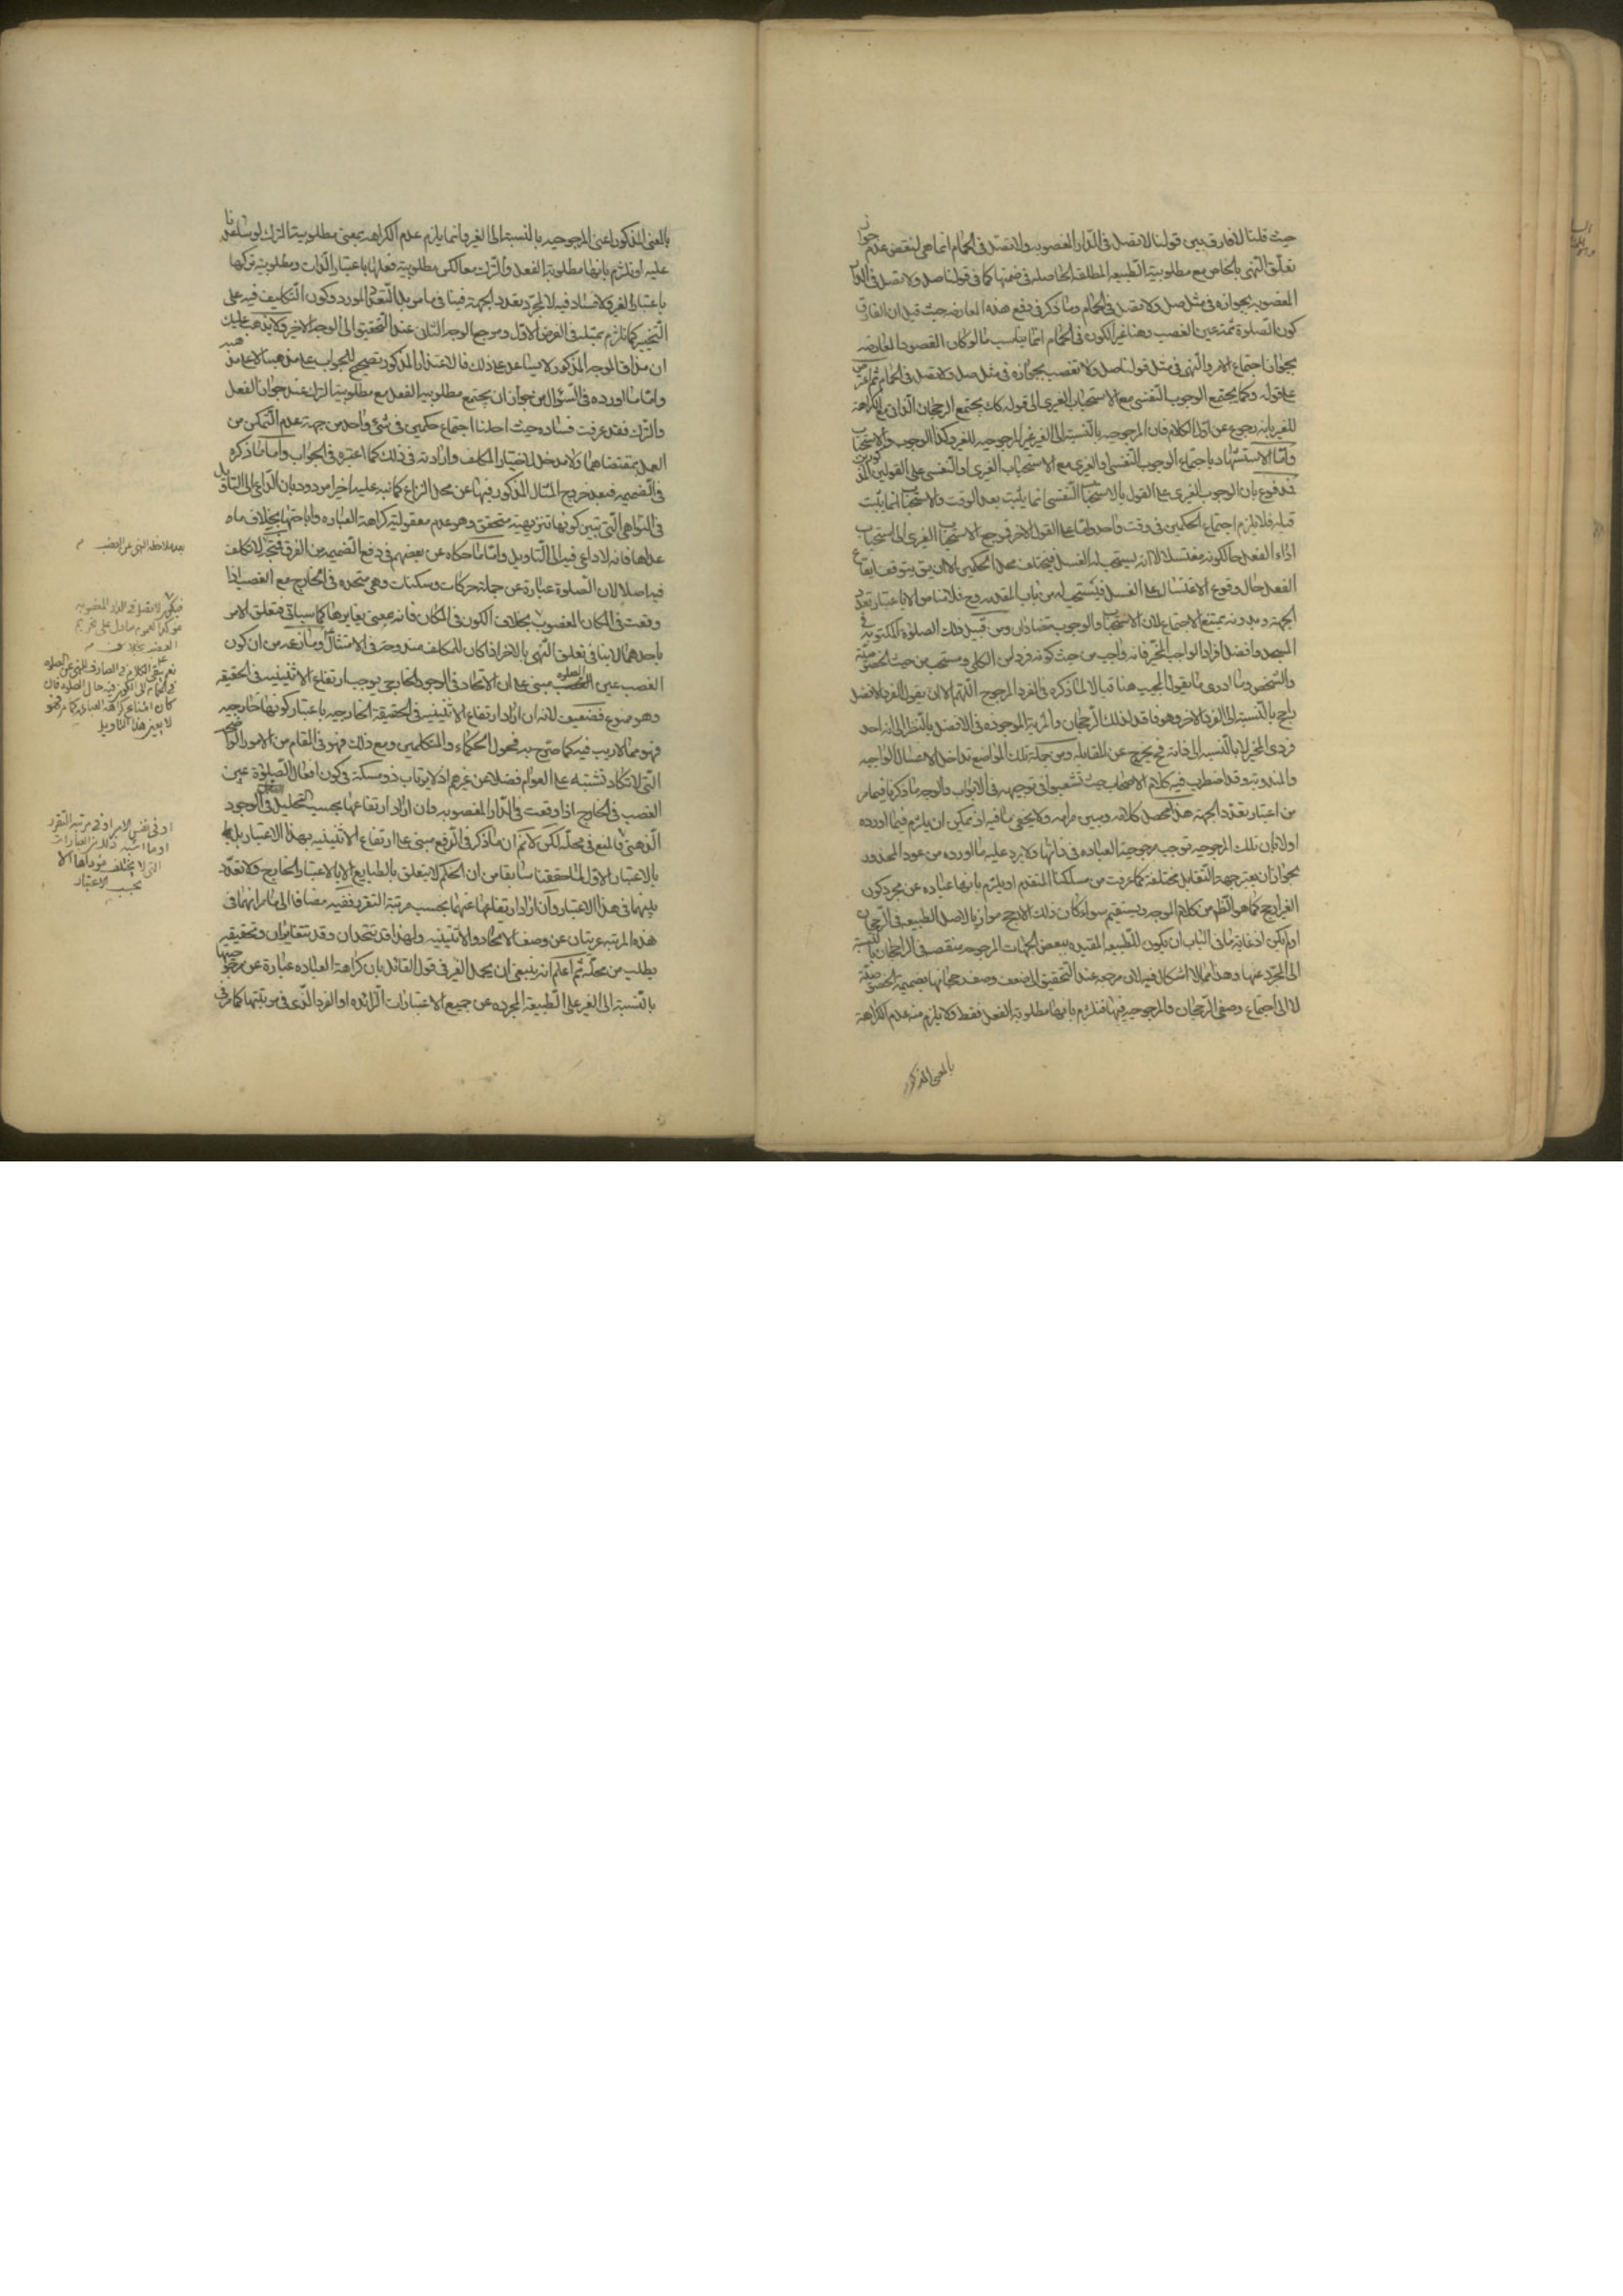 حيث قلنا لا فارق بين قولنا لا تصل في الدار المغصوبه ولا تصل في الحمام انما هي لنقض عدم جواز
تعلق النهي بالخاص مع مطلوبية الطبيعة المطلقة الحاصله في ضمنها كما في قولنا صل ولا تصل في الدار
المغصوبه بجوازه في مثل صل ولا تصل في الحمام وما ذكر في دفع هذه المعارضه حيث قيل ان الفارق
كون الصلوة ثمة عين الغصب وهنا غير الكون في الحمام انما يناسب ما لو كان المقصود المعارضه
بجواز اجتماع الامر والنهي في مثل قولنا صل ولا تغصب بجوازه في مثل صل ولا تصل في الحمام ثم اعترض
على قوله وكما يجتمع الوجوب النفسي مع الاستحباب الغيري الى قوله كك يجتمع الرجحان الذاتي مع الكراهة
للغير بانه رجوع عن اول الكلام فان المرجوحيه بالنسبة الى الغير غير المرجوحيه للغير وكذا الوجوب والاستحباب
واما الاستشهاد باجتماع الوجوب النفسي او الغيري مع الاستحباب الغيري او النفسي على القولين المذكورين
فمدفوع بان الوجوب الغيري على القول بالاستحباب النفسي انما يثبت بعد الوقت والاستحباب انما يثبت
قبله فلا يلزم اجتماع الحكمين في وقت واحد واما على القول الاخر فمرجع الاستحباب الغيري الى استحباب
اداء الفعل حال كونه مغتسلا لا انه يستحب له الغسل فيختلف محل الحكمين الا ان يق يتوقف ايقاع
الفعل حال وقوع الاغتسال على الغسل فيستحب له من باب المقدمه وح فلا مناص الا باعتبار تعدد
الجهة وبدونه يمتنع الاجتماع لان الاستحباب والوجوب متضادان ومن قبيل ذلك الصلوة المكتوبة في
المسجد وافضل افراد الواجب المخير فانه واجب من حيث كونه فردا من الكلي ومستحب من حيث الخصوصية
والتشخص وما ادري ما يقول المجيب هنا قبالا لما ذكره في الفرد المرجوح اللهم الا ان يقول الفرد الافضل
راجح بالنسبة الى الفرد الاخر وهو فاقد لذلك الرجحان والمزية الموجوده في الافضل بالنظر الى انه احد
فردي المخير لا بالنسبه الى ذاته فح يخرج عن المقابله ومن جملة تلك المواضع تداخل الاغسال الواجبه
والمندوبة وقد اضطرب فيه كلام الاصحاب حيث تشعبوا في توجيهه في الابواب والوجه ما ذكرنا فيما مر
من اعتبار تعدد الجهة هذا محصل كلامه ومبين مرامه ولا يخفى ما فيه اذ يمكن ان يلتزم فيما اورده
اولا بان تلك المرجوحيه توجب مرجوحية العباده في ذاتها ولا يرد عليه ما اورده من عود المحذور
بجواز ان يعتبر جهة التقابل مختلفة كما عرفت من مسلكنا المتقدم او يلتزم بانها عباده عن مجرد كون
الغير ارجح كما هو الظ من كلام الموجه ويستقيم سواء كان ذلك الارجح موازيا لاصل الطبيعه في الرجحان
او لم يكن اذ غاية ما في الباب ان يكون للطبيعه المقيده ببعض الجهات المرجوحه منقصه في الرجحان بالنسبة
الى المجرد عنها وهذا مما لا اشكال فيه لان مرجعه عند التحقيق الى ضعف وصف رجحانها بضميمة الخصوصية
لا الى اجتماع وصفي الرجحان والمرجوحيه فيها فنلتزم بانها مطلوبة الفعل فقط ولا يلزم منه عدم الكراهة
بالمعنى المذكور
بالمعنى المذكور اعني المرجوحيه بالنسبة الى الغير وانما يلزم عدم الكراهه بمعنى مطلوبية الترك لو ساعدنا
عليه او نلتزم بانها مطلوبة الفعل والترك معا لكن مطلوبية فعلها باعتبار الذات ومطلوبية تركها
باعتبار الغير ولا فساد فيه لا لمجرد تعدد الجهة فينا في ما مر بل لتعدد المورد وكون التكليف فيه على
التخيير كما نلتزم بمثله في الفرض الاول ومرجع الوجه الثاني عند التحقيق الى الوجه الاخير ولا يذهب عليك
ان مذاق الموجه المذكور لا يساعد على ذلك فالاعتذار المذكور تصحيح للجواب على مذهبنا لا على مذهبه
واما ما اورده في السؤال من جواز ان يجتمع مطلوبيه الفعل مع مطلوبية الترك عند جواز الفعل
والترك فقد عرفت فساده حيث احلنا اجتماع حكمين في شيء واحد من جهة عدم التمكن من
العمل بمقتضاهما ولا مدخل لاختيار المكلف وارادته في ذلك كما اعتبره في الجواب واما ما ذكره
في الضميمه فبعد خروج المثال المذكور فيها عن محل النزاع كما نبه عليه اخيرا مردود بان الداعي الى التاويل
في النواهي التي تبين كونها تنزيهية متحقق وهو عدم معقولية كراهة العباده واباحتها بخلاف ما
عداها فانه لا داعي فيه الى التاويل واما ما حكاه عن بعضهم في دفع الضميمه من الفرق فمتجه لا تكلف
فيه اصلا لان الصلوة عبارة عن جملة حركات وسكنات وهي متحده في الخارج مع الغصب اذا
وقعت في المكان المغصوب بخلاف الكون في المكان فانه معنى يغايرها كما سياتي فتعلق الامر
باحدهما لا ينافي تعلق النهي بالاخر اذا كان للمكلف مندوحة في الامتثال وما زعمه من ان كون
الغصب عين الصلوة مبني على ان الاتحاد في الوجود الخارجي يوجب ارتفاع الاثنينيه في الحقيقه
وهو ممنوع فضعيف لانه ان اراد ارتفاع الاثنينيه في الحقيقة الخارجيه باعتبار كونها خارجيه
فهو مما لا ريب فيه كما صرح به فحول الحكماء والمتكلمين ومع ذلك فهو في المقام من الامور الواضحه
التي لا تكاد تشتبه على العوام فضلا عن غيرهم اذ لا يرتاب ذو مسكة في كون افعال الصلوة عين
الغصب في الخارج اذا وقعت في الدار المغصوبه وان اراد ارتفاعها بحسب التحليل العقلي في الوجود
الذهني فالمنع في محله لكن لا نم ان ما ذكر في الرفع مبني على ارتفاع الاثنينيه بهذا الاعتبار بل
بالاعتبار الاول لما حققنا سابقا من ان الحكم لا يتعلق بالطبايع الا بالاعتبار الخارج ولا تعدد
بينهما في هذا الاعتبار وان اراد ارتفاعها عنهما بحسب مرتبة التقرر ففيه مضافا الى ما مر انهما في
هذه المرتبه عريتان عن وصف الاتحاد والاثنينيه ولهذا قد تتحدان وقد تتغايران وتحقيقه
يطلب من محله ثم اعلم انه ينبغي ان يحمل الغير في قول القائل بان كراهة العباده عبارة عن مرجوحيتها
بالنسبة الى الغير على الطبيعة المجرده عن جميع الاعتبارات الزائده او الفرد الذي في مرتبتها كما مر في
بعد ملاحظة النهي عن الغصب م
فيكون لا تصل في الدار المغصوبه
مؤكدا لعموم ما دل على تحريم
الغصب
نعم يبقى الكلام في الصارف للنهي عن الصلوة
في الحمام الى الكون فيه حال الصلوة فان
كان امتناع كراهة العبادة كما مر فهو
لا يعين هذا التاويل
او في نفس الامر او في مرتبة التقرر
او ما اشبه ذلك من العبارات
التي لا يختلف مؤداها الا
بحسب الاعتبار